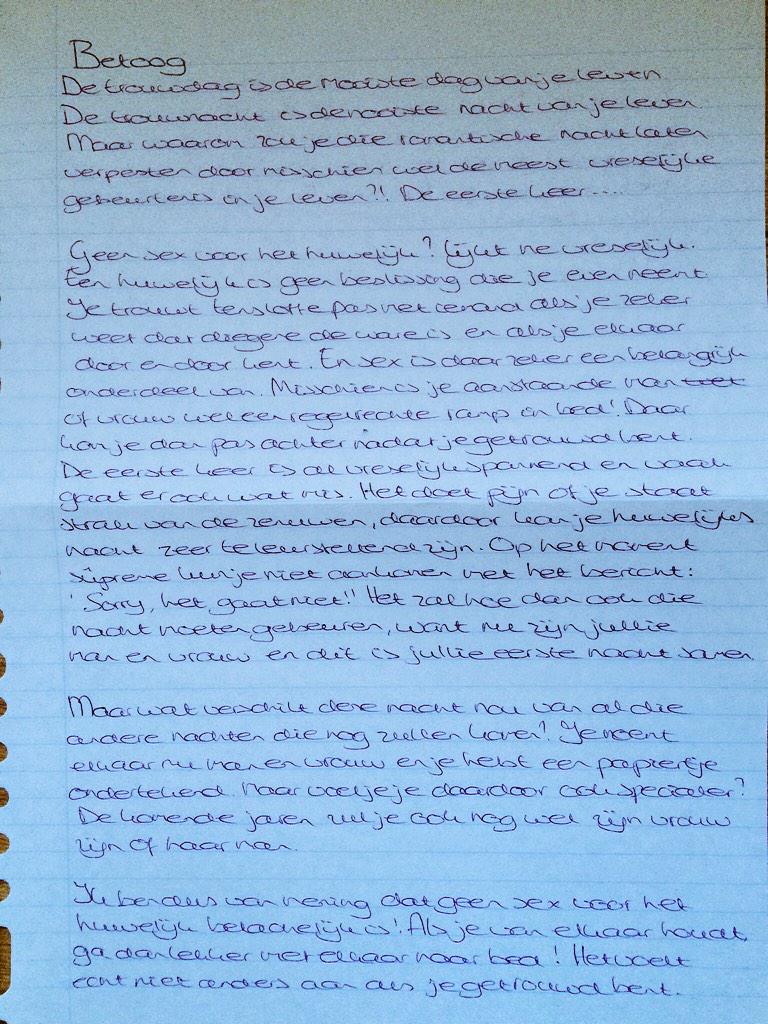 Betoog
De trouwdag is de mooiste dag van je leven
De trouwnacht is de mooiste nacht van je leven
Maar waarom zou je die romantische nacht laten
verpesten door misschien wel de meest vreselijke
gebeurtenis in je leven?! De eerste keer....
Geen sex voor het huwelijk? Lijkt me vreselijk.
Een huwelijk is geen beslissing die je even neemt
Je trouwt tenslotte pas met iemand als je zeker
weet dat diegene de ware is en als je elkaar
door en door kent. En sex is daar zeker een belangrijk
onderdeel van. Misschien is je aanstaande man
of vrouw wel een regelrechte ramp in bed! Daar
kom je dan pas achter nadat je getrouwd bent.
De eerste keer is al vreselijk spannend en vaak
gaat er ook wat mis. Het doet pijn of je staat
strak van de zenuwen, daardoor kan je huwelijks
nacht zeer teleurstellend zijn. Op het moment
suprême kun je niet aankomen met het bericht:
'Sorry, het gaat niet!' Het zal hoe dan ook die
nacht moeten gebeuren, want nu zijn jullie
man en vrouw en dit is jullie eerste nacht samen.
Maar wat verschilt deze nacht nou van al die
andere nachten die nog zullen komen? Je noemt
elkaar nu man en vrouw en je hebt een papiertje
ondertekend. Maar voel je je daardoor ook specialer?
De komende jaren zul je ook nog wel zijn vrouw
zijn of haar man.
Ik ben dus van mening dat geen sex voor het
huwelijk belachelijk is! Als je van elkaar houdt,
ga dan lekker met elkaar naar bed! Het voelt
echt niet anders aan als je getrouwd bent.